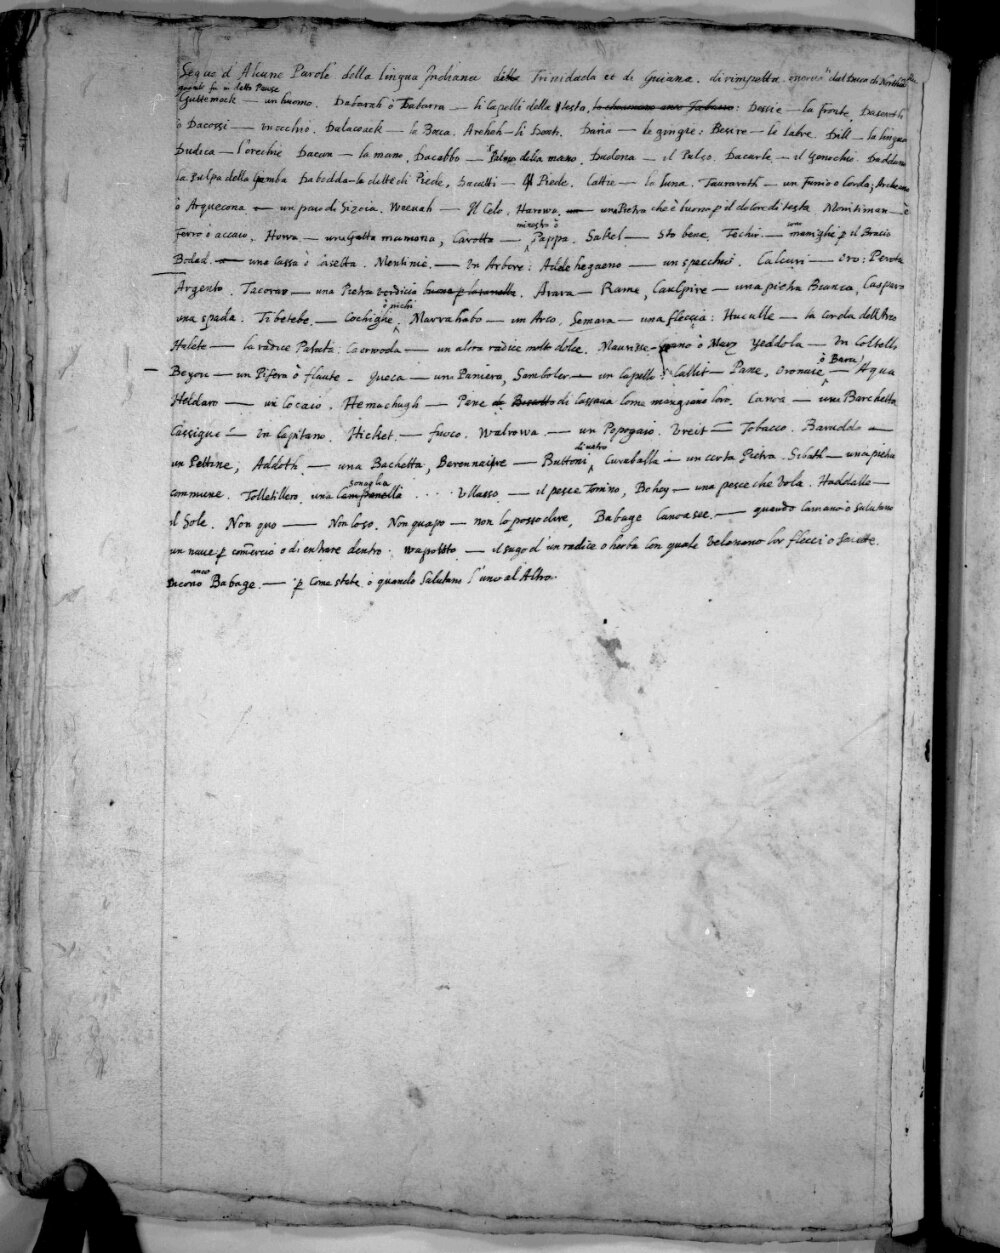 Segue d' Alcune Parole della lingua Indiana della Trinidada et di Guiana. dirimpetta. osserva dal Duca di Northu
quando fu in detto Paese
Guttemock — un huomo. Dabarah ò Dabarra — li Capelli della testa, Dessie — la fronte, Daseroth
ò Dacossi — un occhio. Dalacoack — la Bocca. Archeh — li Denti. Daria — le gingie: Desire — le labre. Dill — la lingua
Dudica — l'orechie Dacun — la mano, Dacabbo — Palmo della mano. Dudona — il Pulso. Dacurle — il Genochio. Daddane
la Pulpa della Gamba Dabodda — le dette di Piede, Dacutti — Il Piede. Cattie — la luna. Tauraroth — un Funio o Corda; Arckeano
ò Arquecona — un paio di Sizoia. Weevah — Il Celo. Harowa. — una Pietra che è buona p il dolore di testa Montiman — è
ferro ò accaio. Howa — una Gatta mamona, Cavotta — minestra ò Pappa. Sakel — sto bene. Techir — come maniglie p il Bracio
Bodad. — una Cassa ò Casetta. Mentinie. — Un Arbore: Addehegaeno — un specchio. Calcuri — oro: Perota
Argento. Tacorao — una Pietra verdicia buona p la ranella. Arara — Rame, Caulpire — una pietra Bianca, Casparo
una spada. Tibetebe. — Cochiglie ò nichi, Marrahabo — un Arco. Semara — una fleccia: Huculle — la corda dell Arco
Halete — la radice Patata: Caerwoda — un altra radice molto dolce. Maurisse — grano ò Mayz Yeddola — Un Coltello
Beyou — un Pifera ò flaute — Jueca — un Paniera, Sambolers — un Capello: Callit — Pane, Oronuie ò Bara — Aqua
Heldaro — un Cocaio. Hemachugh — Pane di Cassava Come mangiano loro. Canoa — una Barchetta
Cassique — Un Capitano. Hicket — fuoco. Walrowa — un Popogaio. Vreit — Tobacco. Baruddo —
un Pettine; Addoth — una Bachetta, Berennaire — Buttoni di vetro, Curaballa — un certa Pietra. Sibath — una pietra
commune. Tolletillero, una sonaglia . . . . Ullasso — il pesce Tonino, Bohey — una pesce che Vola. Haddalle —
il Sole. Non quo — Non loso. Non quapo — non lo posso dire, Babage Canoasse. — quando lamano ò salutano
un naue p comercio o di entrare dentro. wapotsto — il sugo d'un radice o herba con quale velenano lor flecci o saette.
Dicono anco Babage — p Come state ò quando salutano l'uno al Altro.